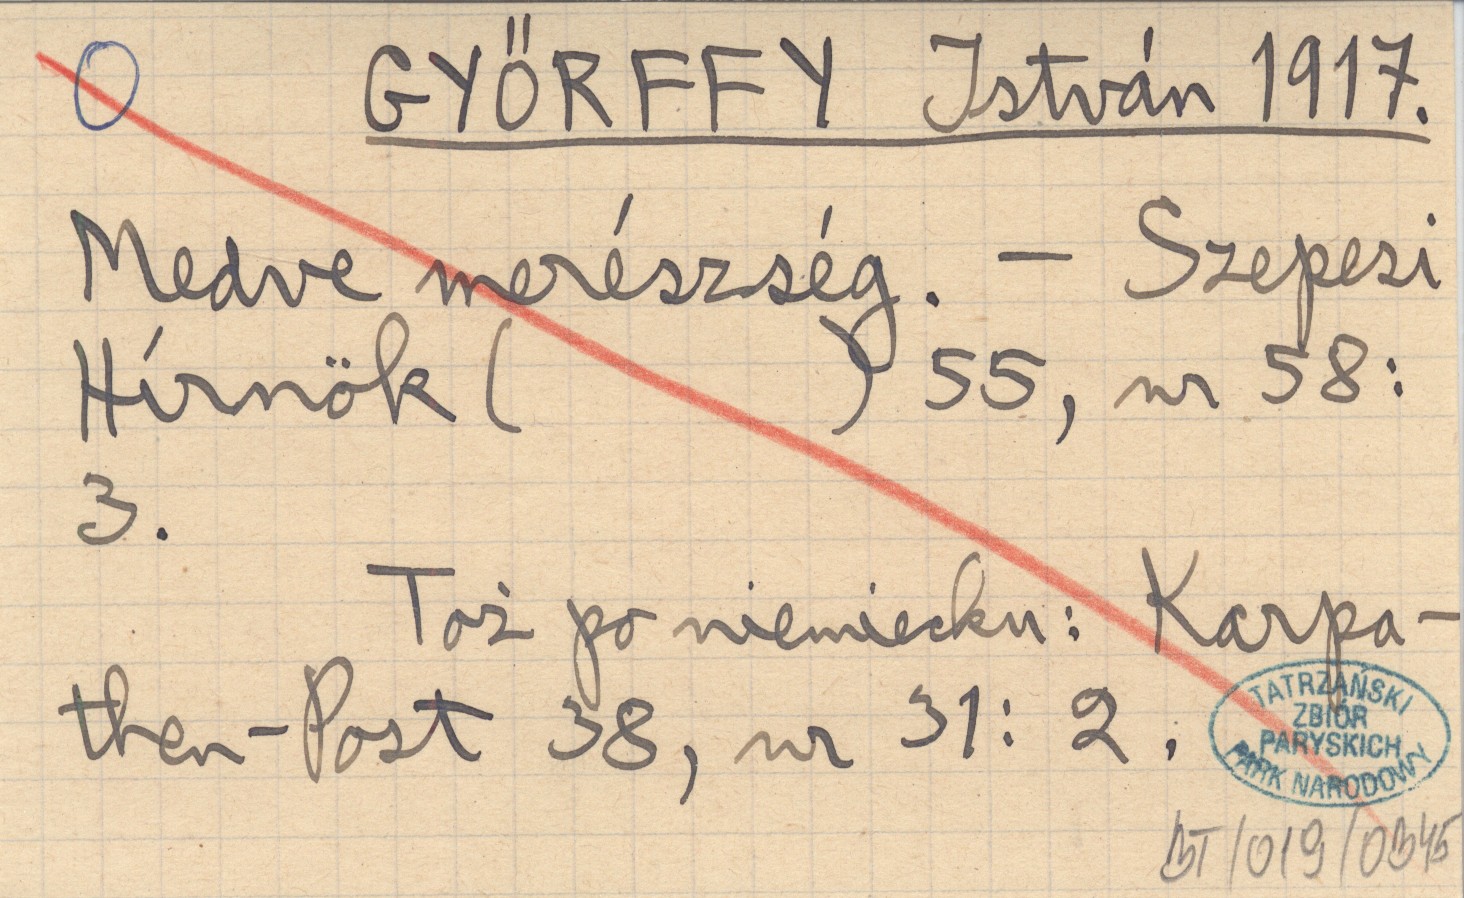 O GYŐRFFY István 1917.
Medve merészség. – Szepesi
Hírnök ( ) 55, nr 58:
3.
Toż po niemiecku: Karpa-
then-Post 38, nr 31: 2.
TATRZAŃSKI
ZBIÓR
PARYSKICH
PARK NARODOWY
BT/019/0345